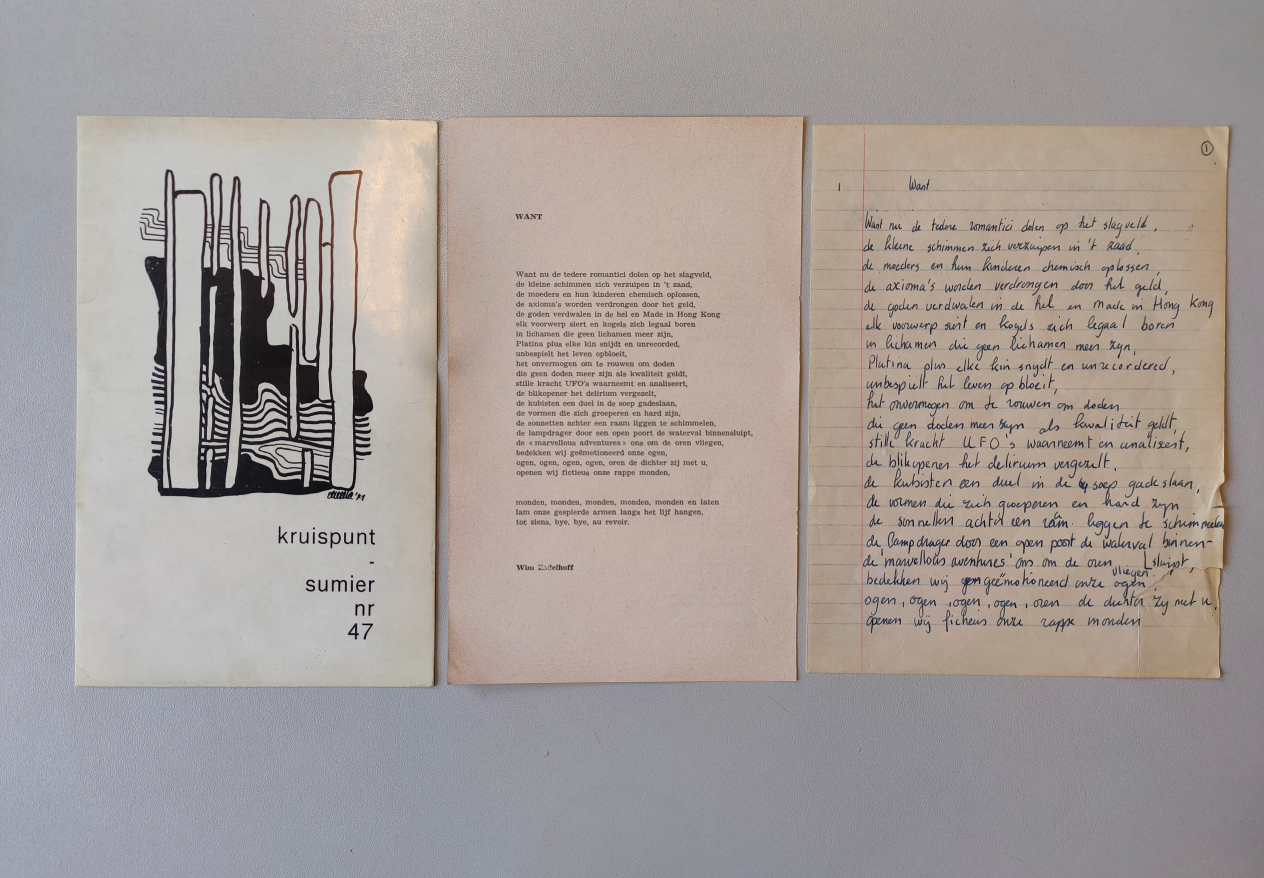 '71
kruispunt
-
sumier
nr
47
WANT
Want nu de tedere romantici dolen op het slagveld,
de kleine schimmen zich verzuipen in 't zaad,
de moeders en hun kinderen chemisch oplossen,
de axioma's worden verdrongen door het geld,
de goden verdwalen in de hel en Made in Hong Kong
elk voorwerp siert en kogels zich legaal boren
in lichamen die geen lichamen meer zijn,
Platina plus elke kin snijdt en unrecorded,
unbespielt het leven opbloeit,
het onvermogen om te rouwen om doden
die geen doden meer zijn als kwaliteit geldt,
stille kracht UFO's waarneemt en analiseert,
de blikopener het delirium vergezelt,
de kubisten een duel in de soep gadeslaan,
de vormen die zich groeperen en hard zijn,
de sonnetten achter een raam liggen te schimmelen,
de lampdrager door een open poort de waterval binnensluipt,
de « marvellous adventures » ons om de oren vliegen,
bedekken wij geëmotioneerd onze ogen,
ogen, ogen, ogen, ogen, oren de dichter zij met u,
openen wij fictieus onze rappe monden,
monden, monden, monden, monden, monden en laten
lam onze gespierde armen langs het lijf hangen,
tot ziens, bye, bye, au revoir.
Wim Zadelhoff
1
1 Want
Want nu de tedere romantici dolen op het slagveld,
de kleine schimmen zich verzuipen in 't zaad,
de moeders en hun kinderen chemisch oplossen,
de axioma's worden verdrongen door het geld,
de goden verdwalen in de hel en made in Hong Kong
elk voorwerp siert en kogels zich legaal boren
in lichamen die geen lichamen meer zyn,
Platina plus elke kin snydt en unrecordered,
unbespielt het leven opbloeit,
het onvermogen om te rouwen om doden
die geen doden meer zyn als kwaliteit geldt,
stille kracht UFO's waarneemt en analiseert,
de blikopener het delirium vergezelt,
de kubisten een duel in de soep gadeslaan,
de vormen die zich groeperen en hard zyn
de sonnetten achter een raam liggen te schimmelen
de lampdrager door een open poort de waterval binnen-
de 'marvellous aventures' ons om de oren vliegen, sluipt,
bedekken wij geëmotioneerd onze ogen
ogen, ogen, ogen, ogen, oren de dichter zy met u,
openen wij ficheus onze rappe monden